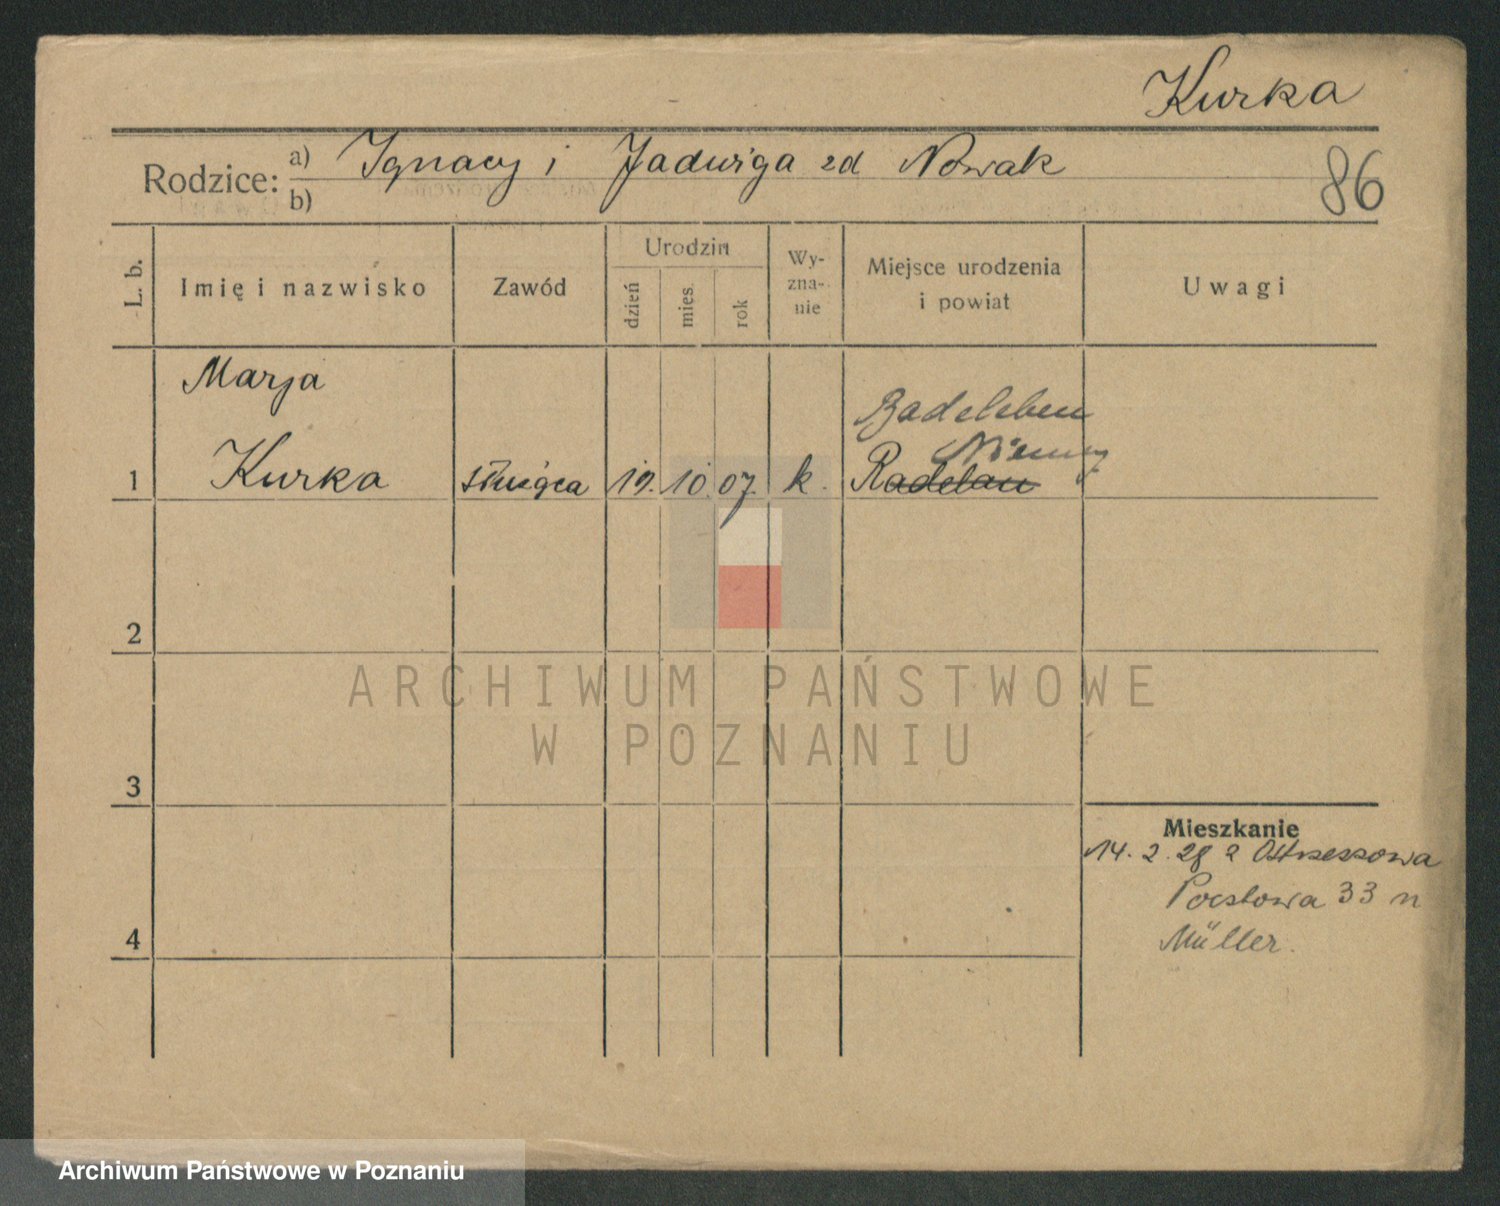 Kurka
Rodzice: a) Ignacy i Jadwiga zd Nowak
b)
86
L. b.
Imię i nazwisko
Zawód
Urodzin
dzień
mies.
rok
Wy-
zna-
nie
Miejsce urodzenia
i powiat
Uwagi
Marja
Badeleben
Niemcy
1 Kurka służąca 19. 10. 07. k. Radelau
2
3
4
Mieszkanie
14. 2. 28 z Ostrzeszowa
Pocztowa 33 n
Müller.
ARCHIWUM PAŃSTWOWE
W POZNANIU
Archiwum Państwowe w Poznaniu